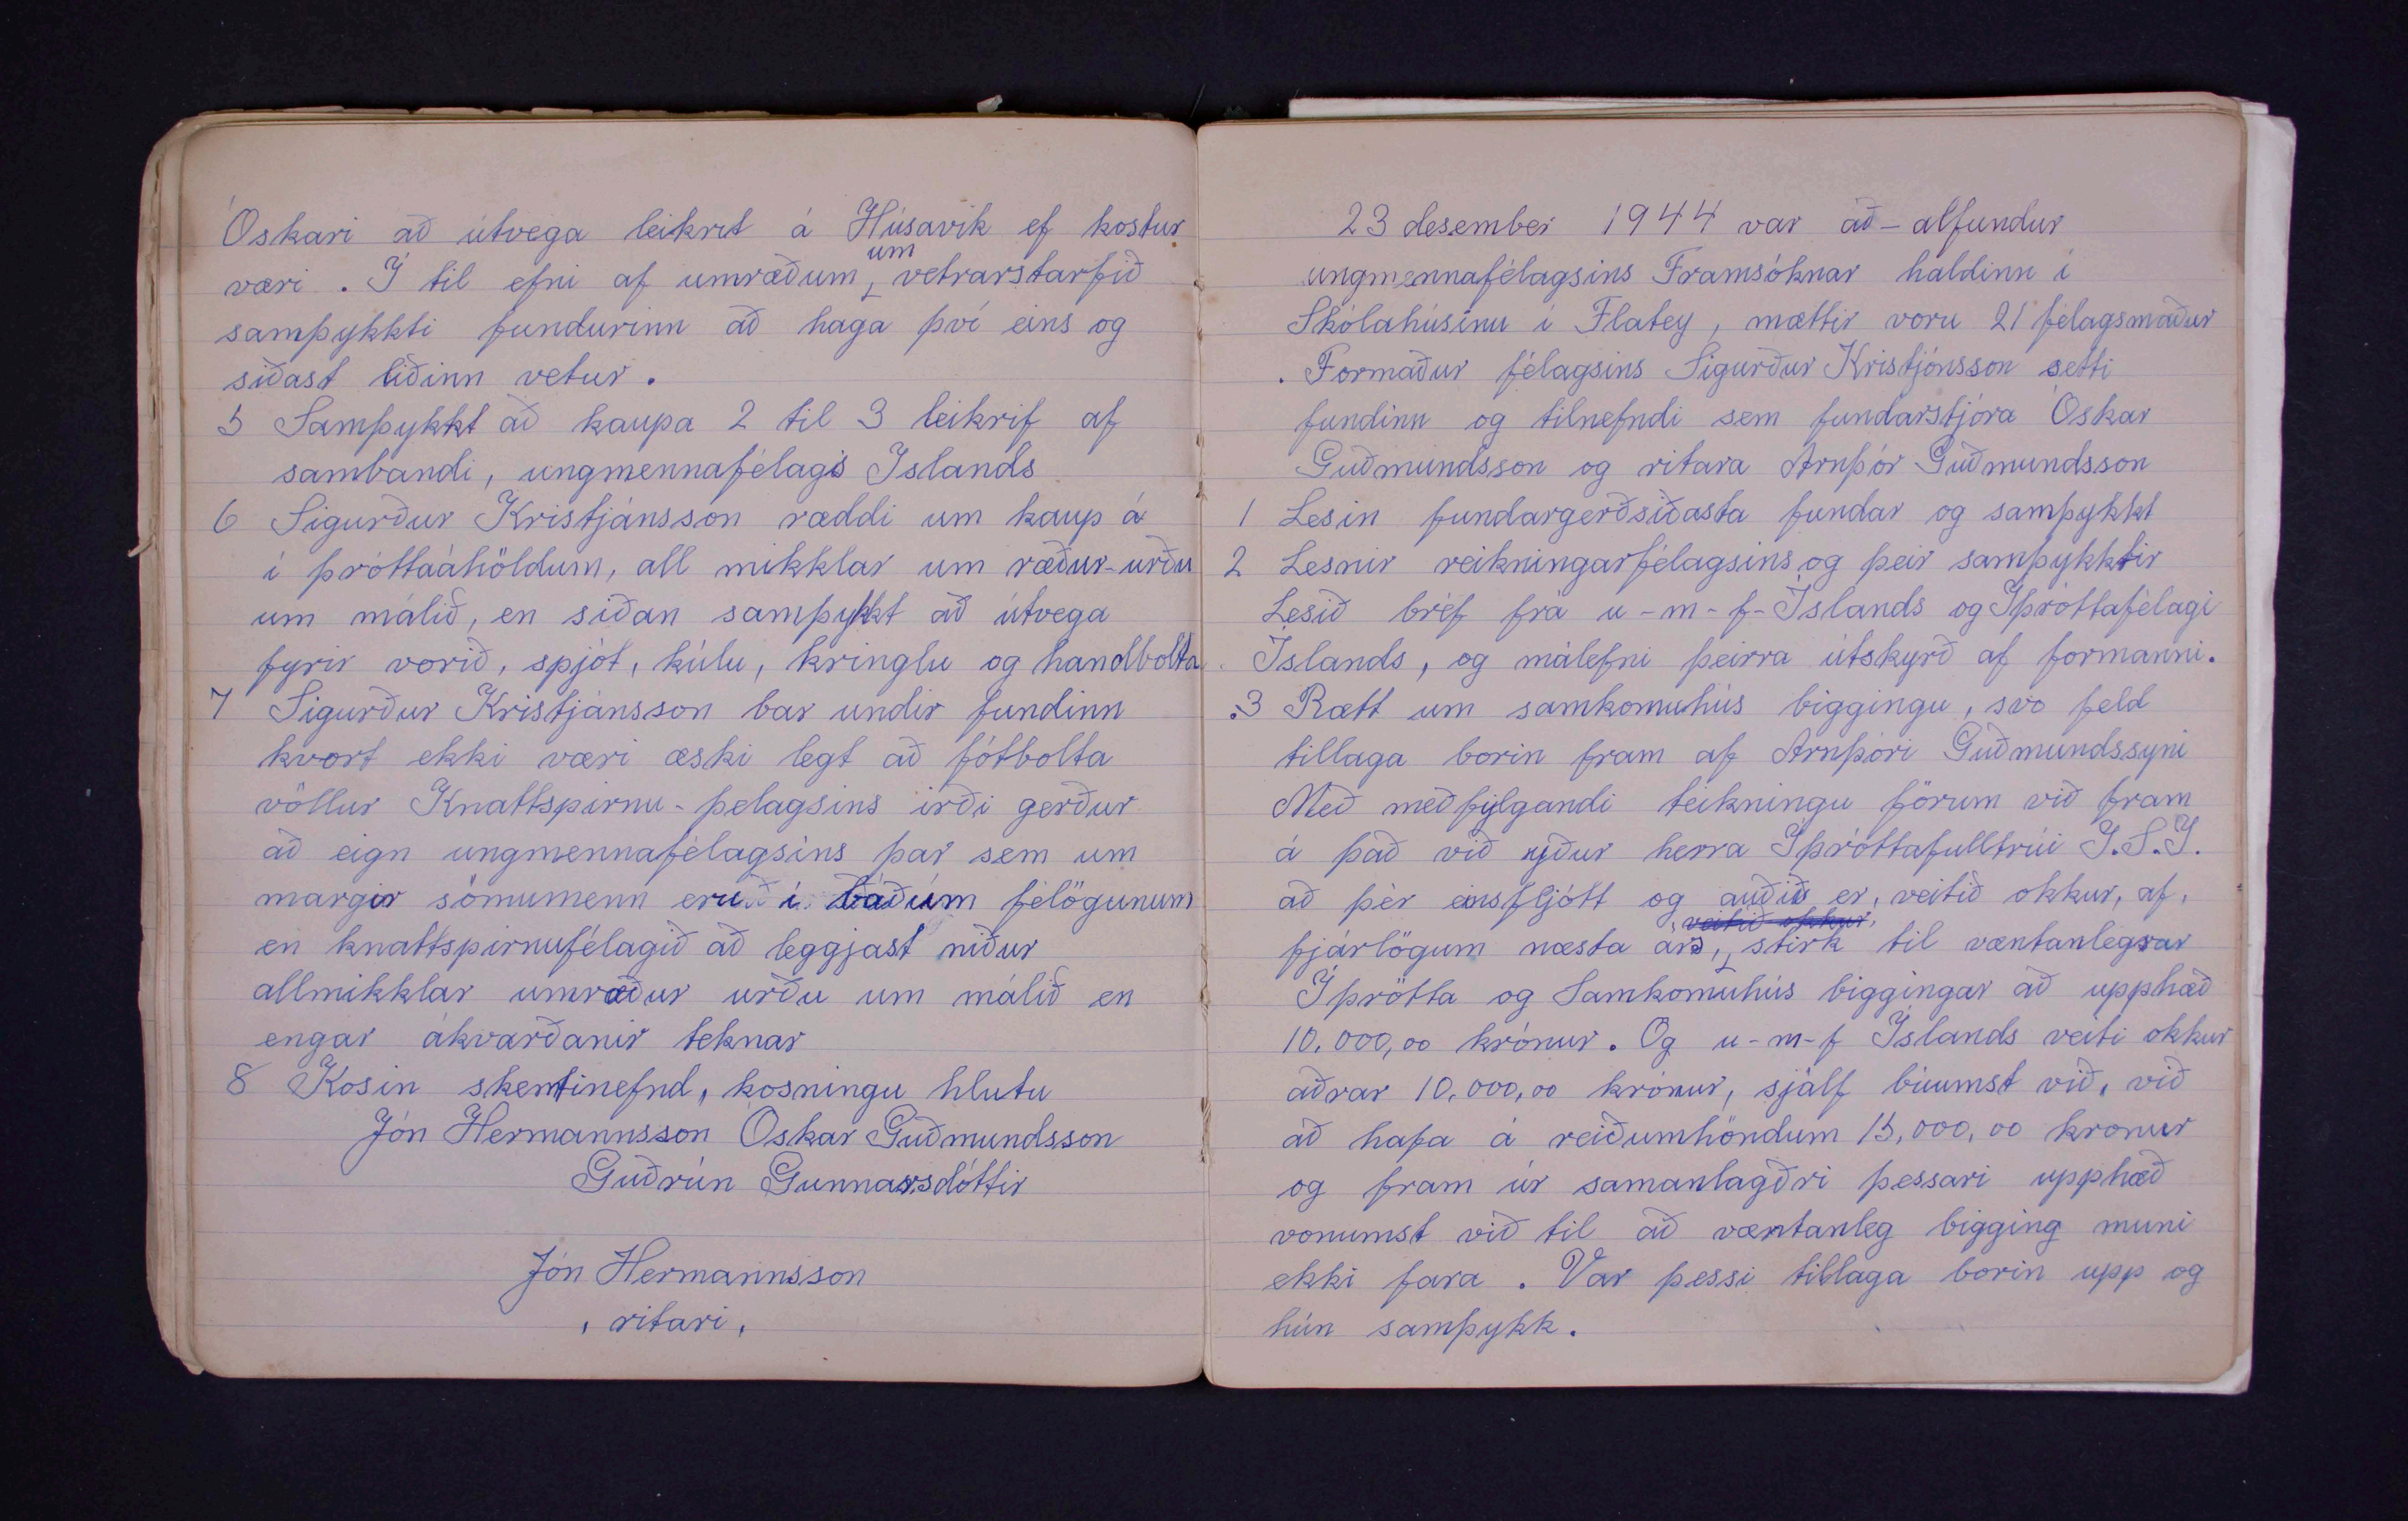 Óskari að útvega leikrit á Húsavík ef kostur
væri. Í til efni af umræðum um vetrarstarfið
samþykkti fundurinn að haga því eins og
siðast liðinn vetur.
5 Samþykkt að kaupa 2 til 3 leikrif af
sambandi, ungmennafélags Islands
6 Sigurður Kristjánsson ræddi um kaup á
í þróttaáhöldum, all mikklar um ræður-urðu
um málið, en siðan samþykkt að útvega
fyrir vorið, spjót, kúlu, kringlu og handbolta
7 Sigurður Kristjánsson bar undir fundinn
kvort ekki væri æski legt að fótbolta
völlur Knattspirnu-þelagsins irði gerður
að eign ungmennafélagsins þar sem um
margir sömumenn eru í báðum félögunum
en knattspirnufélagið að leggjast niður
allmikklar umræður urðu um málið en
engar ákvarðanir teknar
8 Kosin skemtinefnd, kosningu hlutu
Jón Hermannsson Óskar Guðmundsson
Guðrún Gunnarsdóttir
Jón Hermannsson
, ritari,
23 desember 1944 var að-alfundur
ungmennafélagsins Framsóknar haldinn í
Skólahúsinu í Flatey, mættir voru 21 félagsmaður
. Formaður félagsins Sigurður Kristjónsson setti
fundinn og tilnefndi sem fundarstjóra Óskar
Guðmundsson og ritara Arnþór Guðmundsson
1 Lesin fundargerðsiðasta fundar og samþykkt
2 Lesnir reikningarfélagsins og þeir samþykktir
Lesið bréf frá u-m-f-Íslands og Íþróttafélagi
Íslands, og málefni þeirra útskyrð af formanni.
.3 Rætt um samkomuhús biggingu, svo feld
tillaga borin fram af Arnþóri Guðmundssyni
Með meðfylgandi teikningu förum við fram
á það við yður herra Íþróttafulltrúi I.S.I.
að þér einsfljótt og auðið er, veitið okkur, af,
fjárlögum næsta árs, veitið okkur, stirk til væntanlegrar
Íþrótta og Samkomuhús biggingar að upphæð
10.000,00 krónur. Og u-m-f Íslands veiti okkur
aðrar 10.000,00 krónur, sjálf búumst við, við
að hafa á reiðumhöndum 15,000,00 kronur
og fram úr samanlagðri þessari upphæð
vonumst við til að væntanleg bigging muni
ekki fara. Var þessi tillaga borin upp og
hún samþykk.